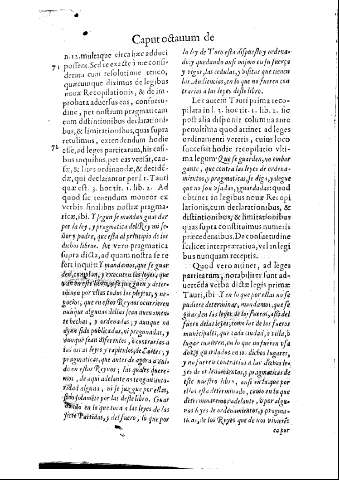 Caput octauum de
n. 12. multaque circa hæc adduci
possent. Sed re exacte à me consi-
derata cum resolutione teneo,
quæcunque diximus de legibus
nouæ Recopilationis, & de im-
probata aduersus eas, consuetu-
dine, pet nostram pragmaticam
cum distinctionibus declarationi-
bus, & limitationibus, quas supra
retulimus, extendendum hodie
esse, ad leges partitarum, his casi-
bus inquibus, per eas versat, cau-
sæ, & iura ordinandæ, & deciden-
dæ, qui declarantur per l. 1. Tauri
quæ est. 3. tit. 1. lib. 2. Ad
quod sic tenendum moueor ex
verbis finalibus nostræ pragmati-
cæ, ibi. Y segun se mandan guardar
por la ley, y pragmatica del Rey mi se-
ñor y padre, que esta al principio de los
dichos libros. At vero pragmatica
supra dicta, ad quam nostra se re-
fert inquit: Y mandamos, que se guar-
den, cumplan, y executen las leyes, que
van en este libro, y se juzguen y deter-
minen por ellas todos los pleytos, y ne-
gocios, que en estos Reynos ocurrieren
aunque algunas dellas sean nueuamen-
te hechas, y ordenadas, y aunque no
sean publicadas, ni pregonadas, y
aunque sean diferentes, o contrarias a
las otras leyes y capitulos de Cortes, y
pragmaticas, que antes de agora a auido
en estos Reynos; las quales quere-
mos, que de aqui adelante no tengan auto-
ridad alguna, ni se juzgue por ellas,
sino solamente por las deste libro. Guar-
dando en lo que toca a las leyes de las
siete Partidas, y del fuero, lo que por
la ley de Toro esta dispuesto y ordena-
do; y quedando ansi mismo en su fuerça
y vigor, las cedulas, y visitas que tienen
las Audiencias, en lo que no fueren con-
trarias a las leyes deste libro.
Lex autem Tauri prima reco-
pilata in l. 3. tit. 1. lib. 2. sic
post alia disponit columna ante
penultima quod attinet ad leges
ordinamenti veteris, cuius loco
successit hodie recopilatio vlti-
ma legum: Que se guarden, no embar-
gante, que contra las leyes de ordena-
mientos, y pragmaticas, se diga, y alegue
que no son vsadas, y guardadas: quod
obtinet in legibus nouæ Recopi-
lationis, cum declarationibus, &
distinctionibus, & limitationibus
quas supra constituimus numeris
præcedentibus. De consuetudine
scilicet interpratiua, vel in legi
bus nunquam receptis.
Quod vero attinet, ad leges
partitarum, notabiliter sunt ad-
uertenda verba dictæ legis primæ
Tauri, ibi: Y en lo que por ellas no se
pudiere determinar, mandamos, que se
guarden las leyes de los fueros, assi del
fuero de las leyes, como los de los fueros
municipales, que cada ciudad, y villa, o
lugar tuuieren, en lo que son o fueren vsa
dos, y guardados en los dichos lugares,
y no fueren contrarios a las dichas le-
yes de ordenamientos, y pragmaticas de
este nuestro libro, assi en lo que por
ellas esta determinado, como en lo que
determinaremos adelante, o por algu-
nas leyes de ordenamientos, y pragma-
ticas, de los Reyes de donde nos venimos
ca por